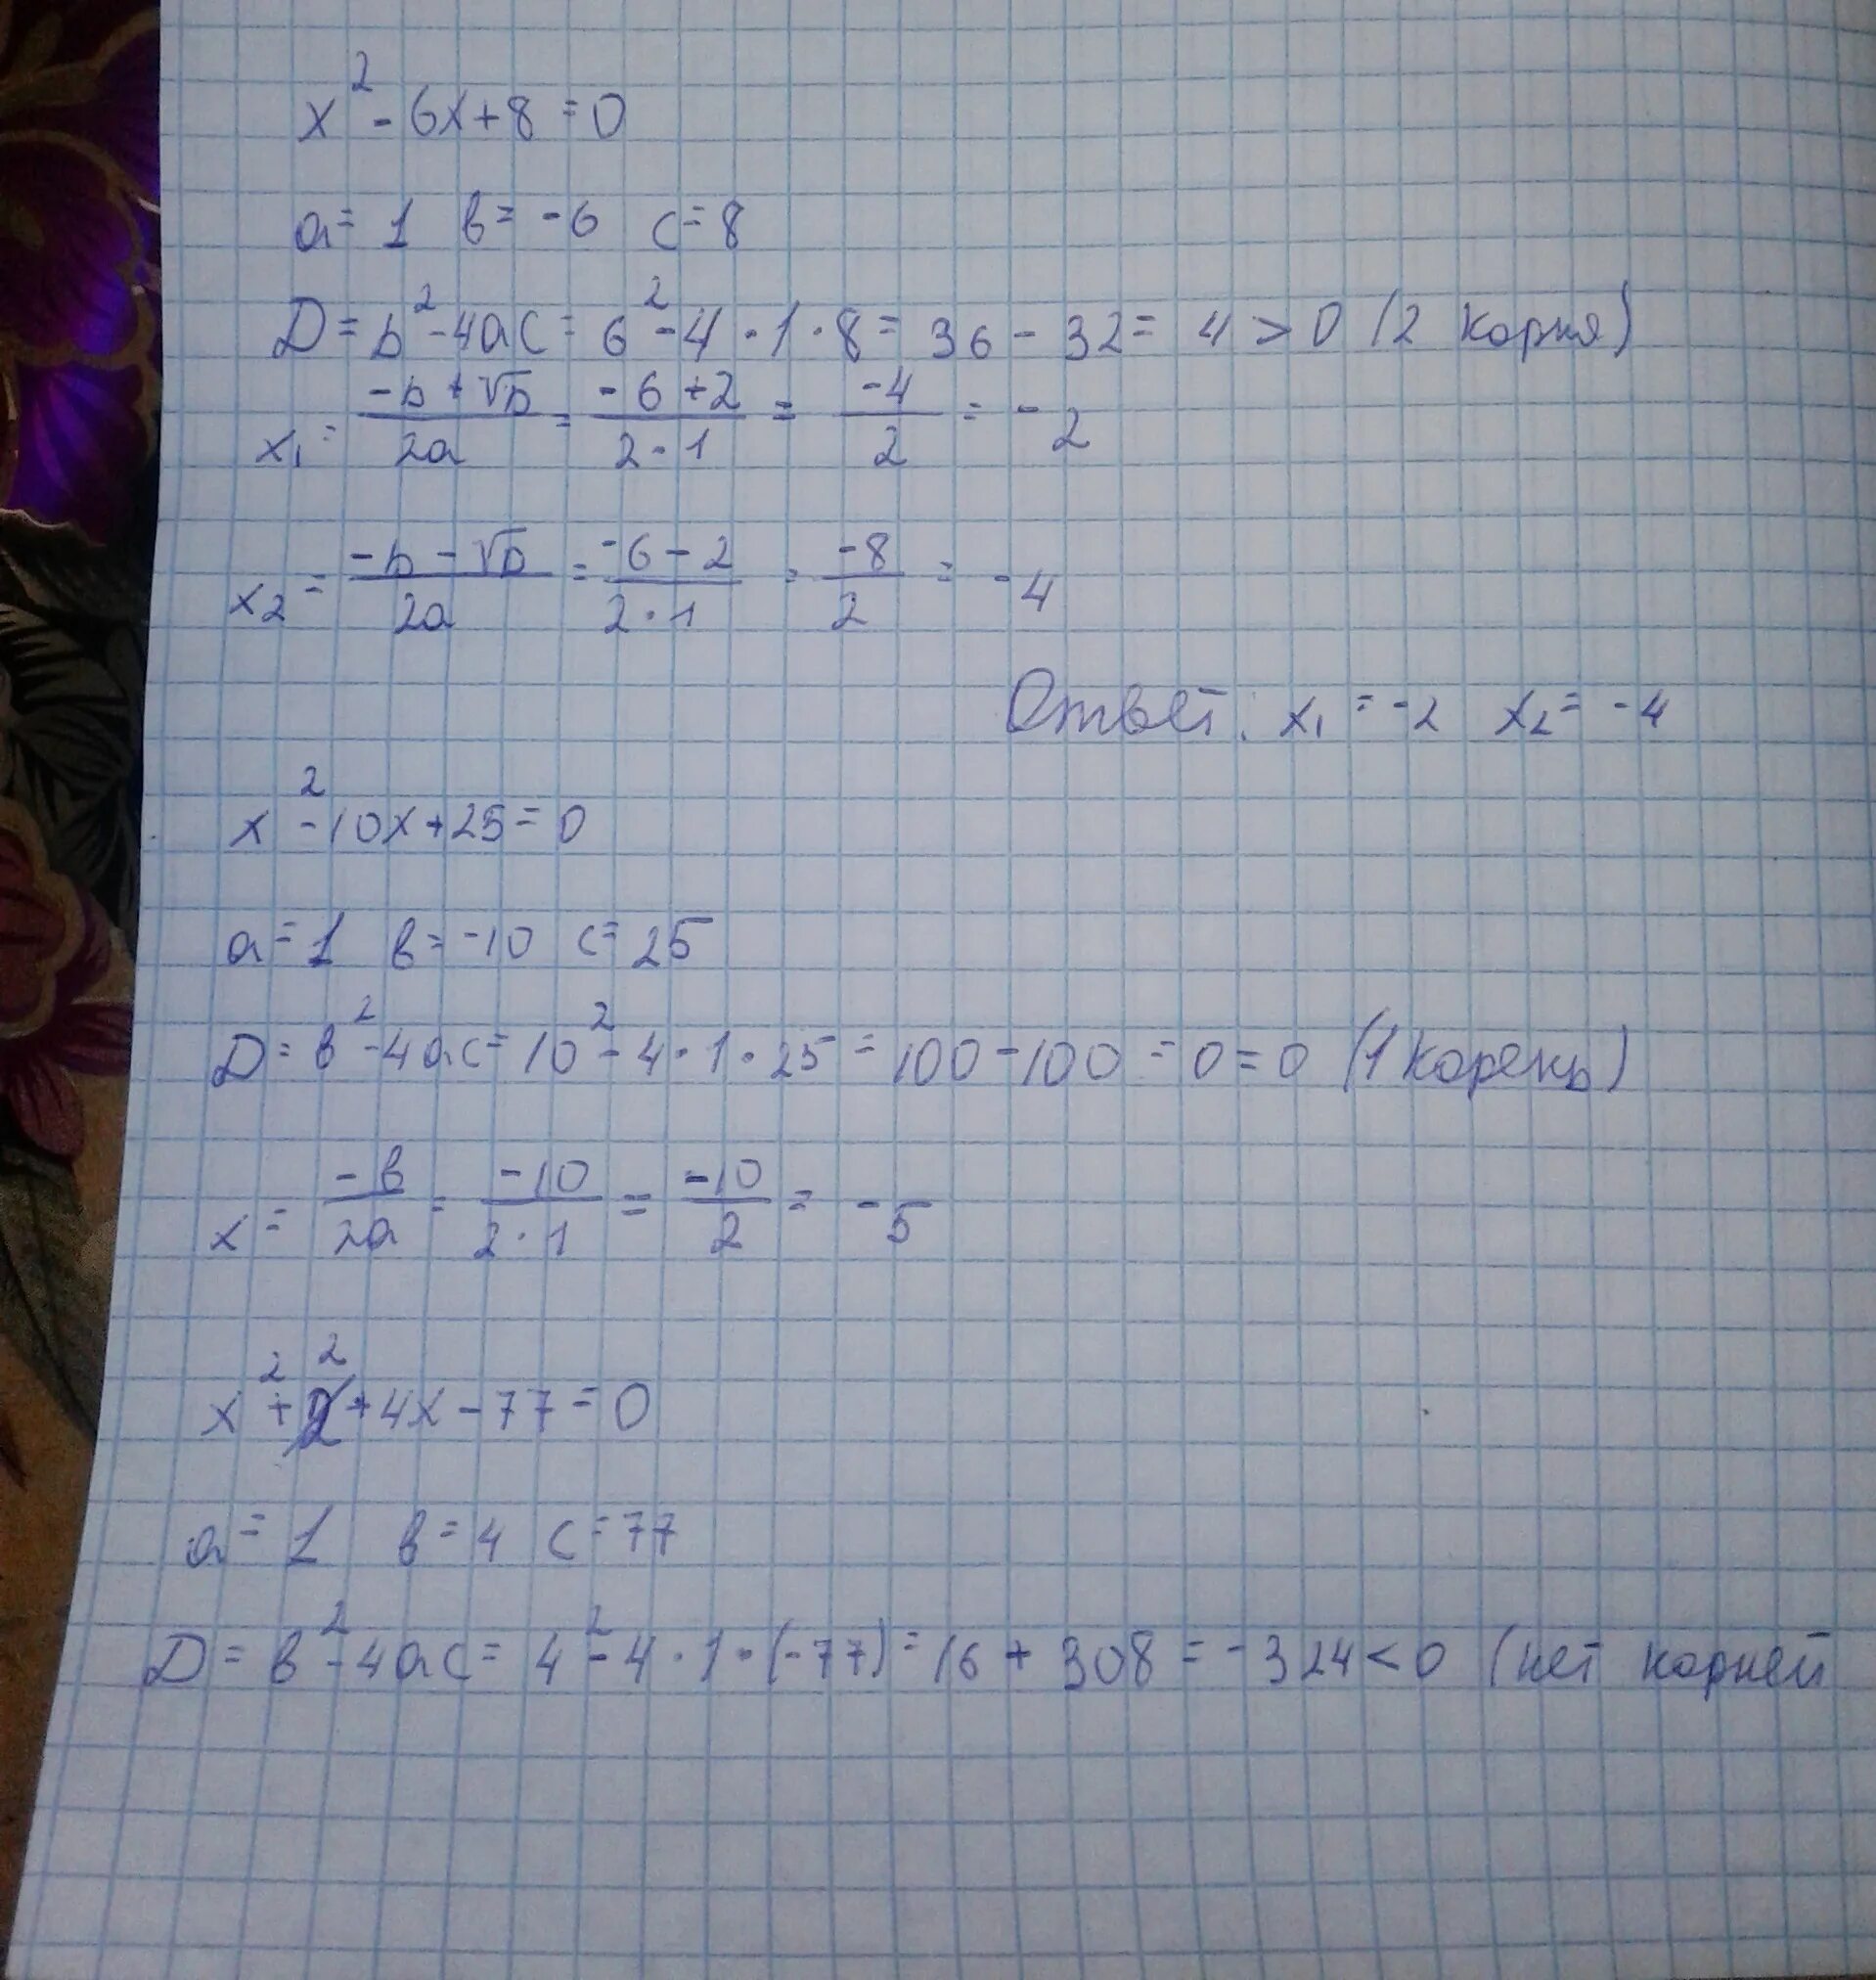 x² - 6x + 8 = 0
a = 1 в = -6 c = 8
D = b² - 4ac = 6² - 4 · 1 · 8 = 36 - 32 = 4 > 0 (2 корня)
x₁ = (-b + √D)/(2a) = (-6 + 2)/(2 · 1) = -4/2 = -2
x₂ = (-b - √D)/(2a) = (-6 - 2)/(2 · 1) = -8/2 = -4
Ответ: x₁ = -2 x₂ = -4
x² - 10x + 25 = 0
a = 1 в = -10 c = 25
D = в² - 4ac = 10² - 4 · 1 · 25 = 100 - 100 = 0 = 0 (1 корень)
x = -в/(2a) = -10/(2 · 1) = -10/2 = -5
x² + 4x - 77 = 0
a = 1 в = 4 c = 77
D = в² - 4ac = 4² - 4 · 1 · (-77) = 16 + 308 = -324 < 0 (нет корней